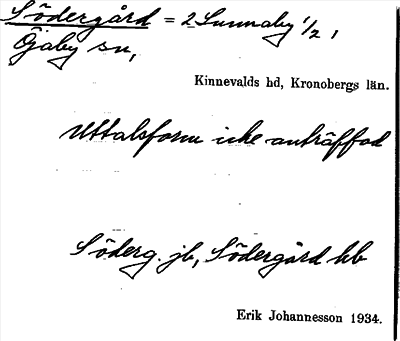 Södergård = 2 Sunnaby 1/2,
Öjaby sn,
Kinnevalds hd, Kronobergs län.
Uttalsform icke anträffad
Söderg. jb, Södergård hb
Erik Johannesson 1934.